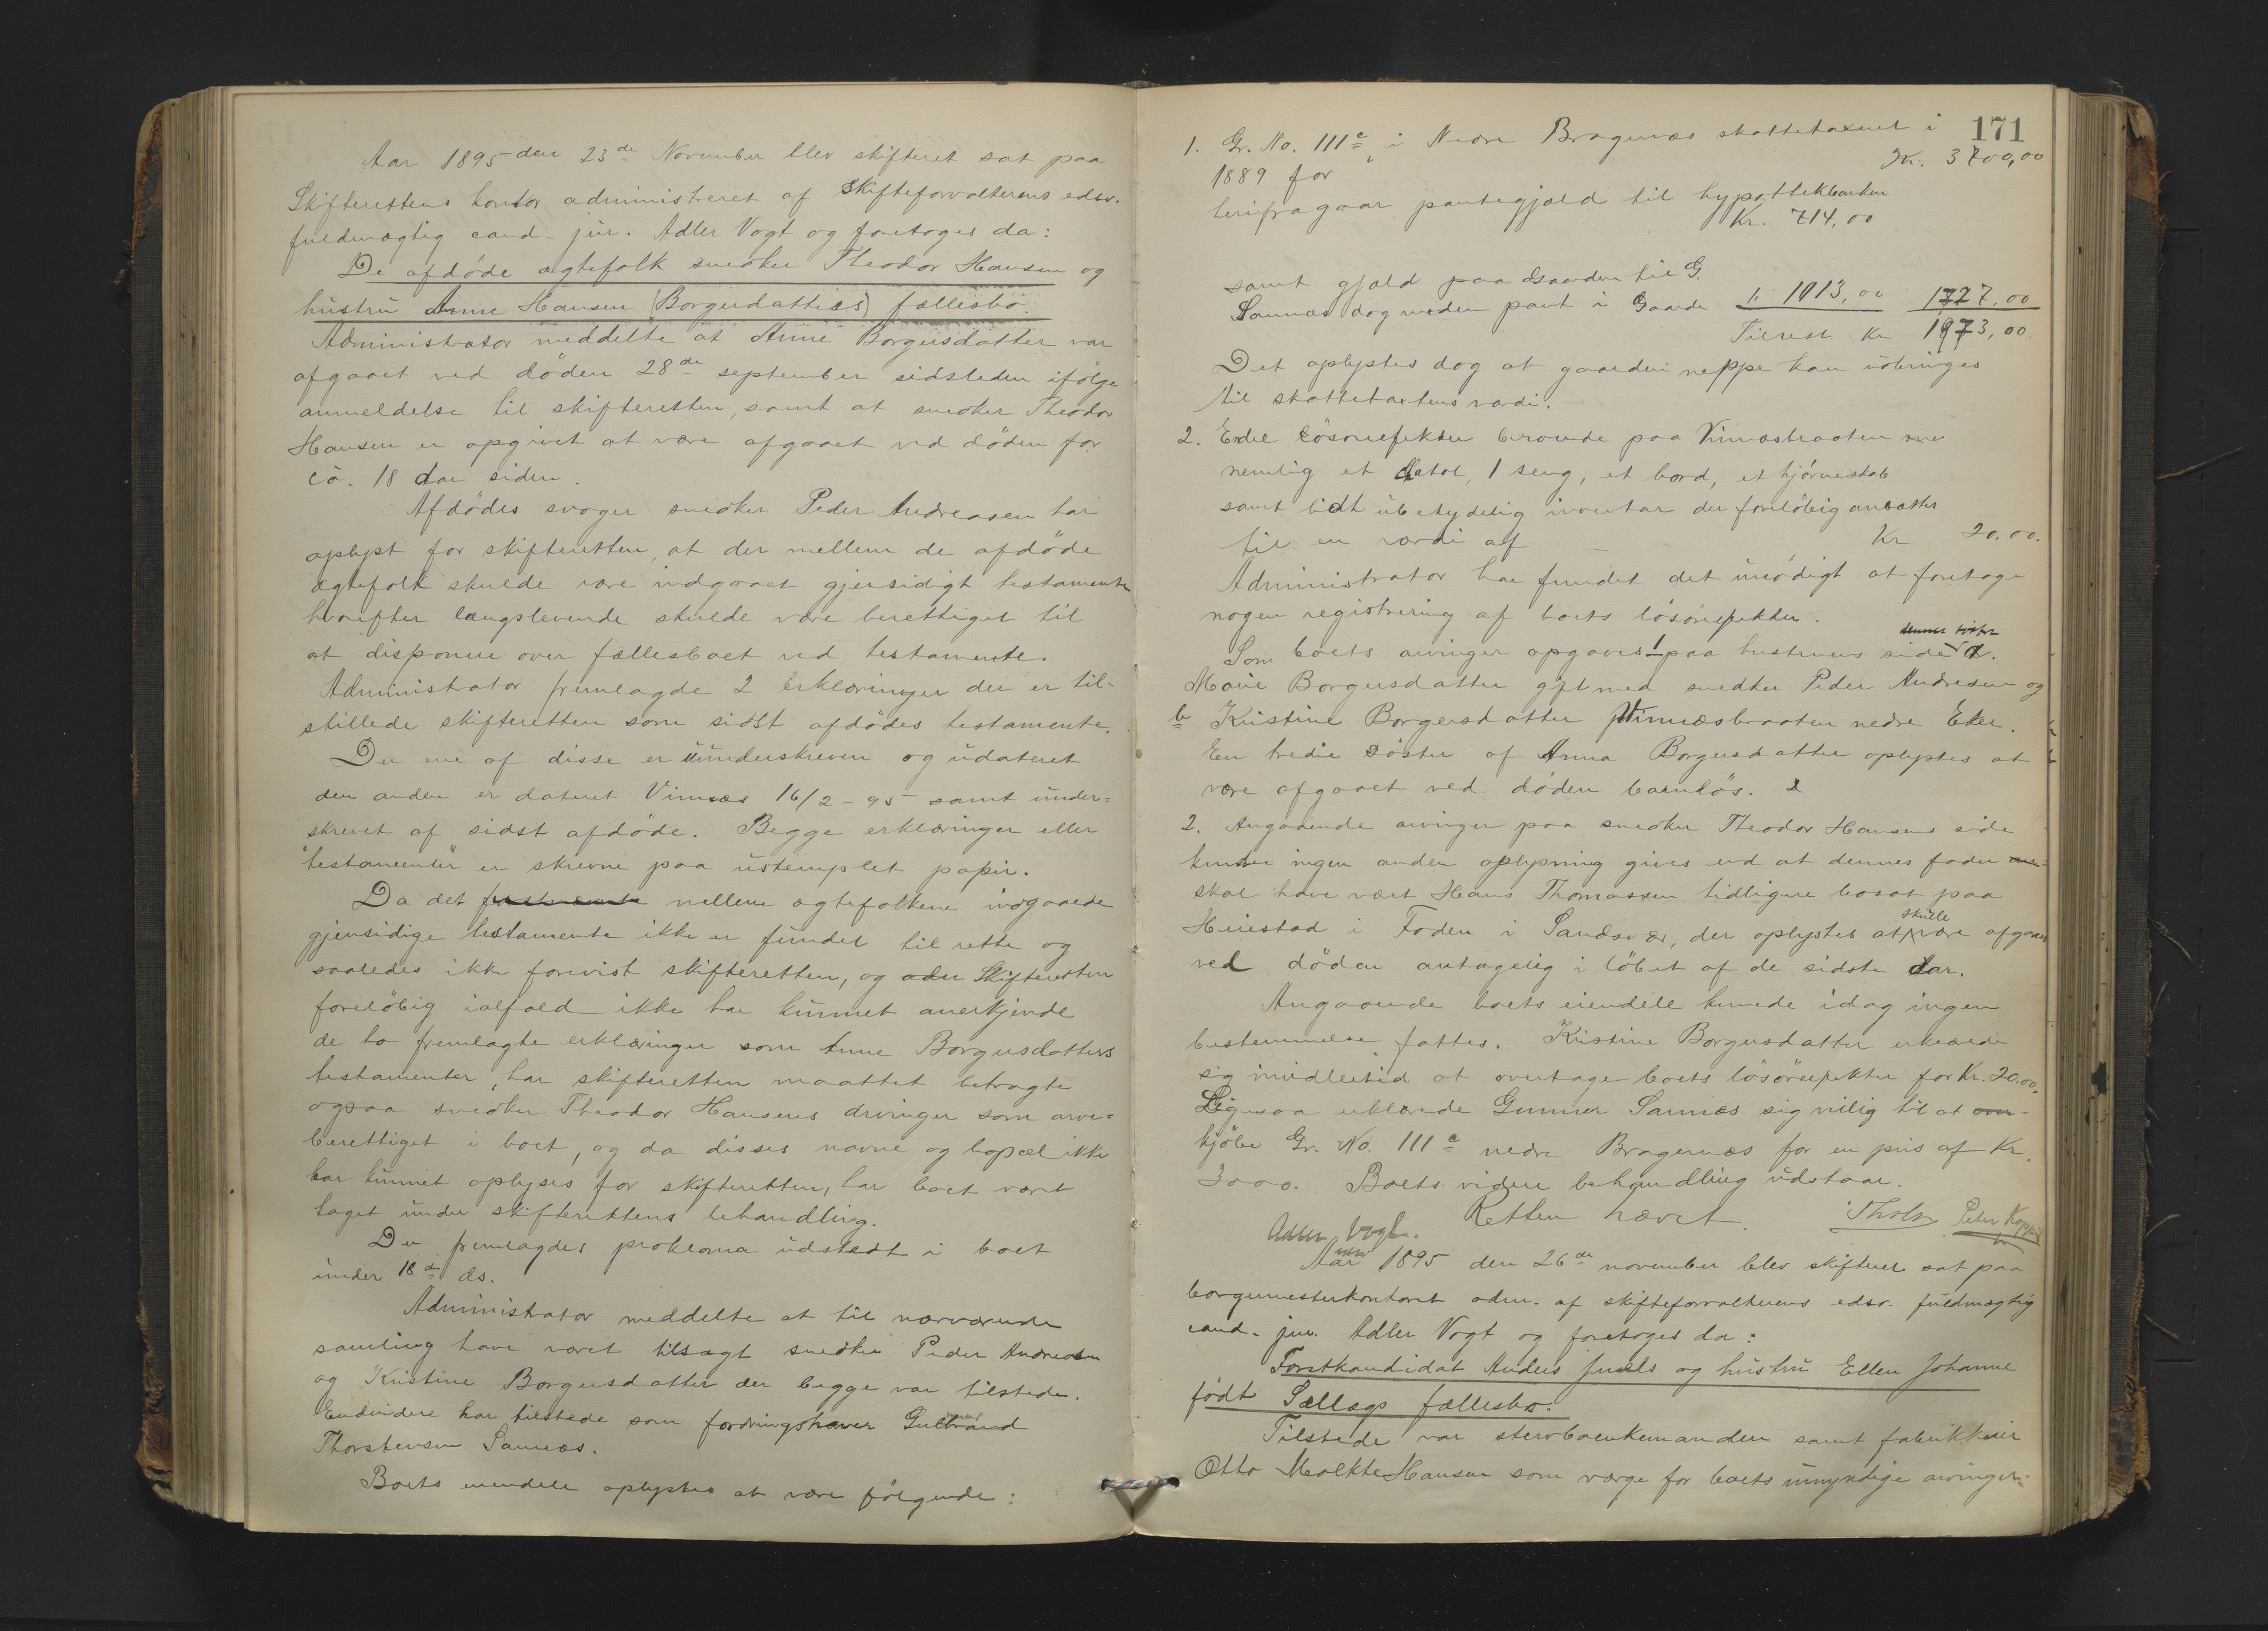 Aar 1895 den 23de November blev skifteret sat paa
Skifterettens kontor administreret af Skifteforvalterens edsv.
fuldmægtig cand. jur. Adler Vogt og foretoges da:
De afdöde ægtefolk snedker Theodor Hansen og
hustru Anne Hansen (Borgersdatters) fællesbo.
Administrator meddelte at Anne Borgersdatter var
afgaaet ved döden 28de september sidstleden ifölge
anmeldelse til skifteretten, samt at snedker Theodor
Hansen er opgivet at være afgaaet ved döden for
ca. 18 Aar siden.
Afdödes svoger snedker Peder Andreasen har
oplyst for skifteretten, at der mellem de afdöde
ægtefolk skulde være indgaaet gjensidigt testamente
hvorefter længstlevende skulde være berettiget til
at disponere over fællesboet ved testamente.
Administrator fremlagde 2 Erklæringer der er til-
stillede skifteretten som sidst afdödes testamente.
Den ene af disse er uunderskreven og udateret
den anden er dateret Vimnæs 16/2-95 samt under-
skrevet af sidst afdöde. Begge erklæringer eller
"testamenter" er skrevne paa ustemplet papir.
Da det mellem ægtefolkene indgaaede
gjensidige testamente ikke er fundet til rette og
saaledes ikke forevist skifteretten, og da Skifteretten
forelöbig ialfald ikke har kunnet anerkjende
de to fremlagte erklæringer som Anne Borgersdatters
testamenter, har skifteretten maattet betragte
ogsaa snedker Theodor Hansens arvinger som arve-
berettiget i boet, og da disses navne og bopæl ikke
har kunnet oplyses for skifteretten, har boet været
taget under skifterettens behandling.
Der fremlagdes proklama udstedt i boet
under 18de ds.
Administrator meddelte at til nærværende
samling have været tilsagt snedker Peder Andreasen
og Kristine Borgersdatter der begge var tilstede.
Endvidere har tilstede som fordringshaver Gulbrand
Thorstensen Sannæs.
Boets eiendele oplystes at være fölgende:
171
1. Gr. No. 111c i Nedre Bragernæs skattetaxeret i
1889 for Kr. 3700,00
herifragaar pantegjæld til hypothekbanken
Kr. 714,00
samt gjæld paa Gaarden til G.
Sannæs dog uden pant i Gaarden " 1013,00 1727.00
Tilrest Kr 1973,00.
Det oplystes dog at gaarden neppe kan udbringes
til skattetaxtens værdi.
2. Endel lösöreefekter beroende paa Vimnæsbraaten
nemlig et Chatol, 1 seng, et bord, et hjörneskab
samt lidt ubetydelig inventar der forelöbig ansættes
til en værdi af Kr 20.00.
Administrator har fundet det unödigt at foretage
nogen registrering af boets lösöreefekter.
dennes söster
Som boets arvinger opgaves 1 paa hustruens side a.
Marie Borgersdatter gift med snedker Peder Andresen og
b Kristine Borgersdatter Vimnæsbraaten nedre Eker.
En tredie söster af Anna Borgersdatter oplystes at
være afgaaet ved döden barnlös.
2. Angaaende arvinger paa snedker Theodor Hansens side
kunde ingen anden oplysning gives end at dennes fader
skal have været Hans Thomassen tidligere bosat paa
Heiestad i Foden i Sandsvær, der oplystes at skulle være afgaaet
ved döden antagelig i löbet af de sidste Aar.
Angaaende boets eiendele kunde idag ingen
bestemmelse fattes. Kristine Borgersdatter erklærede
sig imidlertid at overtage boets lösöreefekter for Kr. 20.00.
Ligesaa erklærede Gunner Sannæs sig villig til at over
kjöbe Gr. No. 111c nedre Bragernæs for en pris af Kr.
3000. Boets videre behandling udstaar.
Retten hævet.
Adler Vogt. Thols Peter Koppe
Aar 1895 den 26de november blev skifteret sat paa
borgermesterkontoret adm. af skifteforvalterens edsv. fuldmægtig
cand. jur. Adler Vogt og foretoges da:
Forstkandidat Anders Juels og hustru Ellen Johanne
födt Sællags fællesbo.
Tilstede var stervboenkemanden samt fabrikkeier
Otto Molkte Hansen som værge for boets umyndige arvinger.